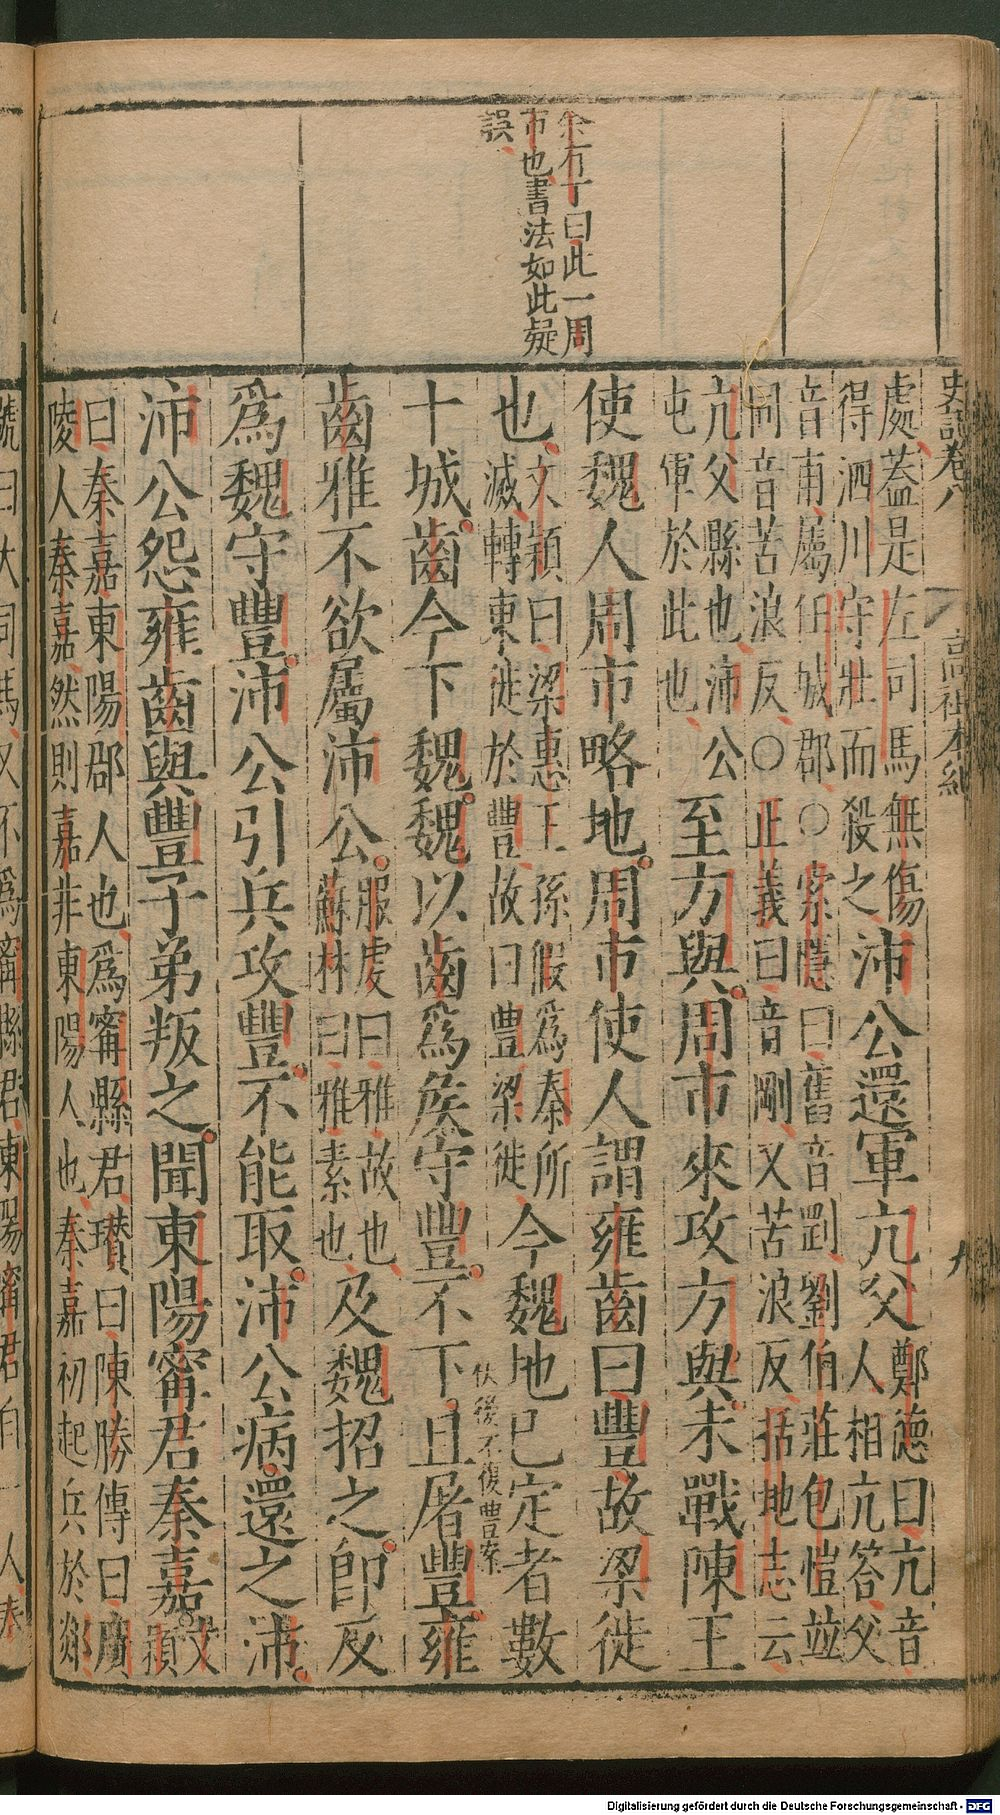 史記卷八
高祖本紀
九
余有丁曰此一周
市也書法如此疑
誤
處蓋是左司馬無傷
得泗川守壯而殺之
沛公還軍亢父
鄭德曰亢音
人相亢答父
音甫屬任城郡○索隱曰舊音剛劉伯莊包愷並
同音苦浪反○正義曰音剛又苦浪反括地志云
亢父縣也沛公
屯軍於此也
至方與周市來攻方與未戰陳王
使魏人周市略地周市使人謂雍齒曰豐故梁徙
也
文穎曰梁惠王孫假為秦所
滅轉東徙於豐故曰豐梁徙
今魏地已定者數
伏後不復豐案
十城齒今下魏魏以齒爲矦守豐不下且屠豐雍
齒雅不欲屬沛公
服虔曰雅故也
蘇林曰雅素也
及魏招之卽反
爲魏守豐沛公引兵攻豐不能取沛公病還之沛
沛公怨雍齒與豐子弟叛之聞東陽甯君秦嘉
文
穎
曰秦嘉東陽郡人也爲甯縣君瓚曰陳勝傳曰廣
陵人秦嘉然則嘉非東陽人也秦嘉初起兵於郯
號曰大司馬又不爲甯縣君東陽甯君自一人秦
Digitalisierung gefördert durch die Deutsche Forschungsgemeinschaft - DFG